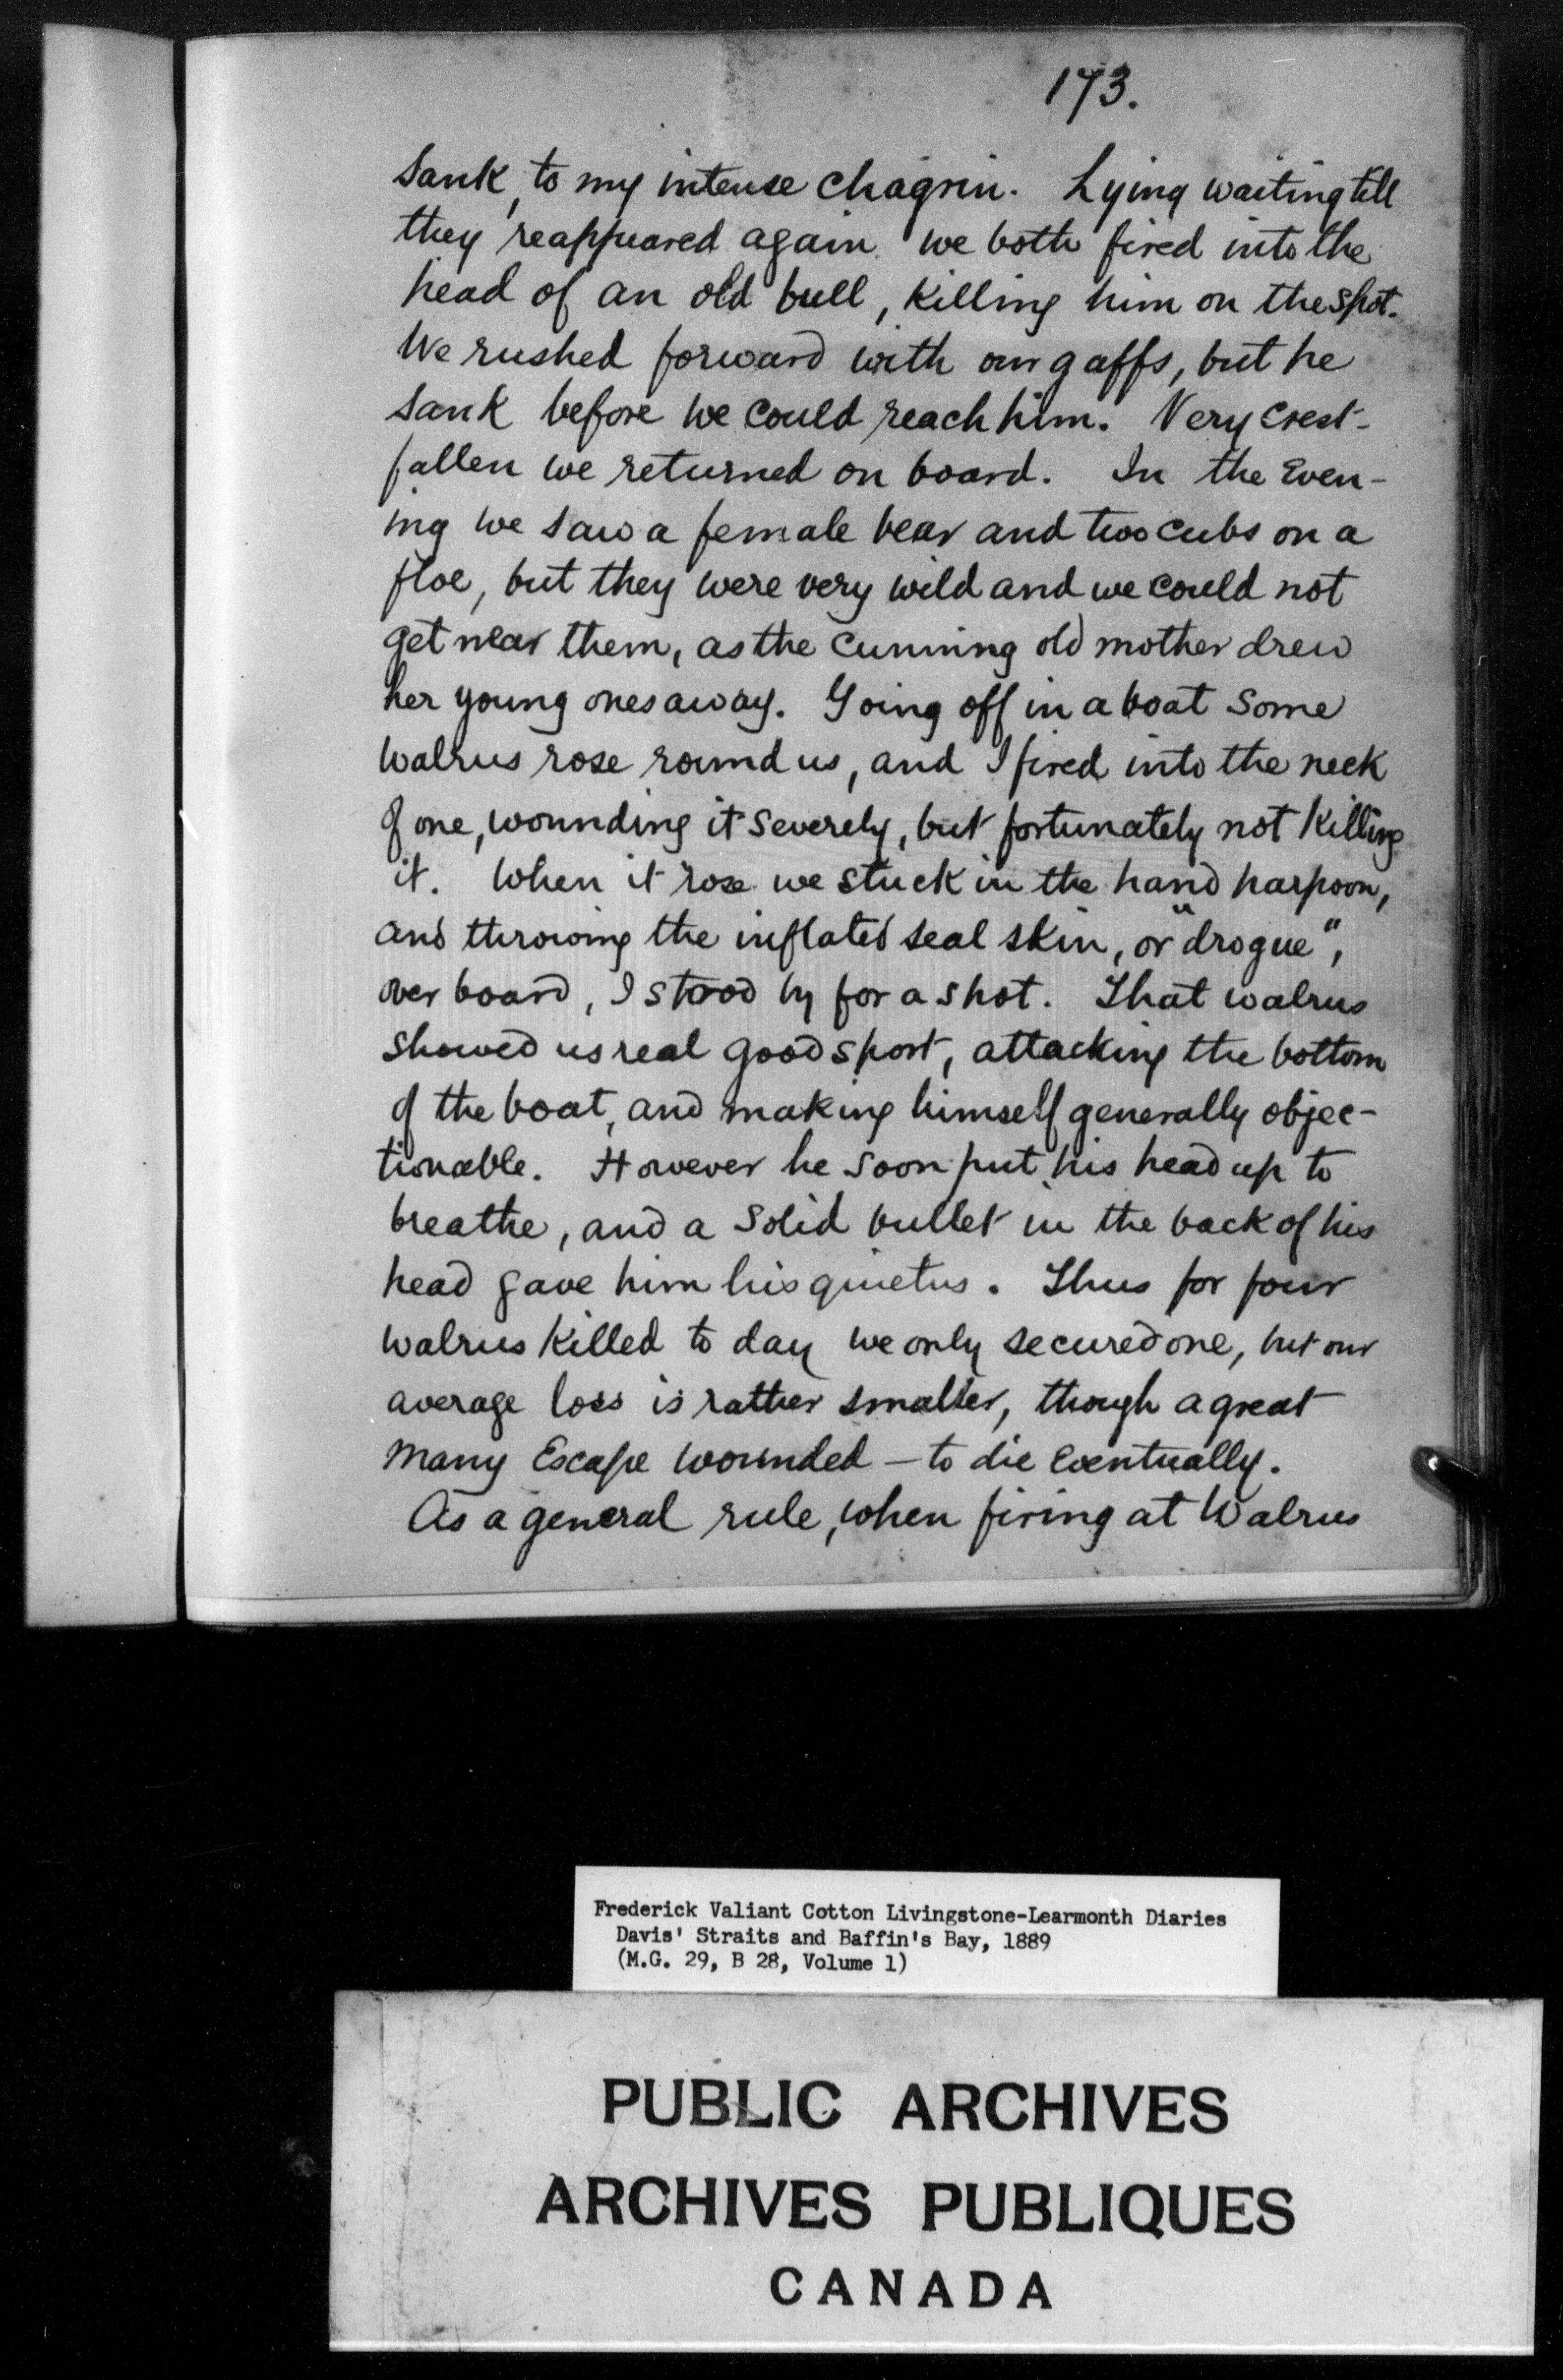 173.
sank, to my intense chagrin. Lying waiting till
they reappeared again we both fired into the
head of an old bull, killing him on the spot.
We rushed forward with our gaffs, but he
sank before we could reach him. Very crest-
fallen we returned on board. In the Even-
ing we saw a female bear and two cubs on a
floe, but they were very wild and we could not
get near them, as the cunning old mother drew
her young ones away. Going off in a boat some
walrus rose round us, and I fired into the neck
of one, wounding it severely, but fortunately not killing
it. When it rose we stuck in the hand harpoon,
and throwing the inflated seal skin, or "drogue",
over board, I stood by for a shot. That walrus
showed us real good sport, attacking the bottom
of the boat, and making himself generally objec-
tionable. However he soon put his head up to
breathe, and a solid bullet in the back of his
head gave him his quietus. Thus for four
walrus killed to day we only secured one, but our
average loss is rather smaller, though a great
many Escape wounded — to die Eventually.
As a general rule, when firing at Walrus
Frederick Valiant Cotton Livingstone-Learmonth Diaries
Davis' Straits and Baffin's Bay, 1889
(M.G. 29, B 28, Volume 1)
PUBLIC ARCHIVES
ARCHIVES PUBLIQUES
CANADA